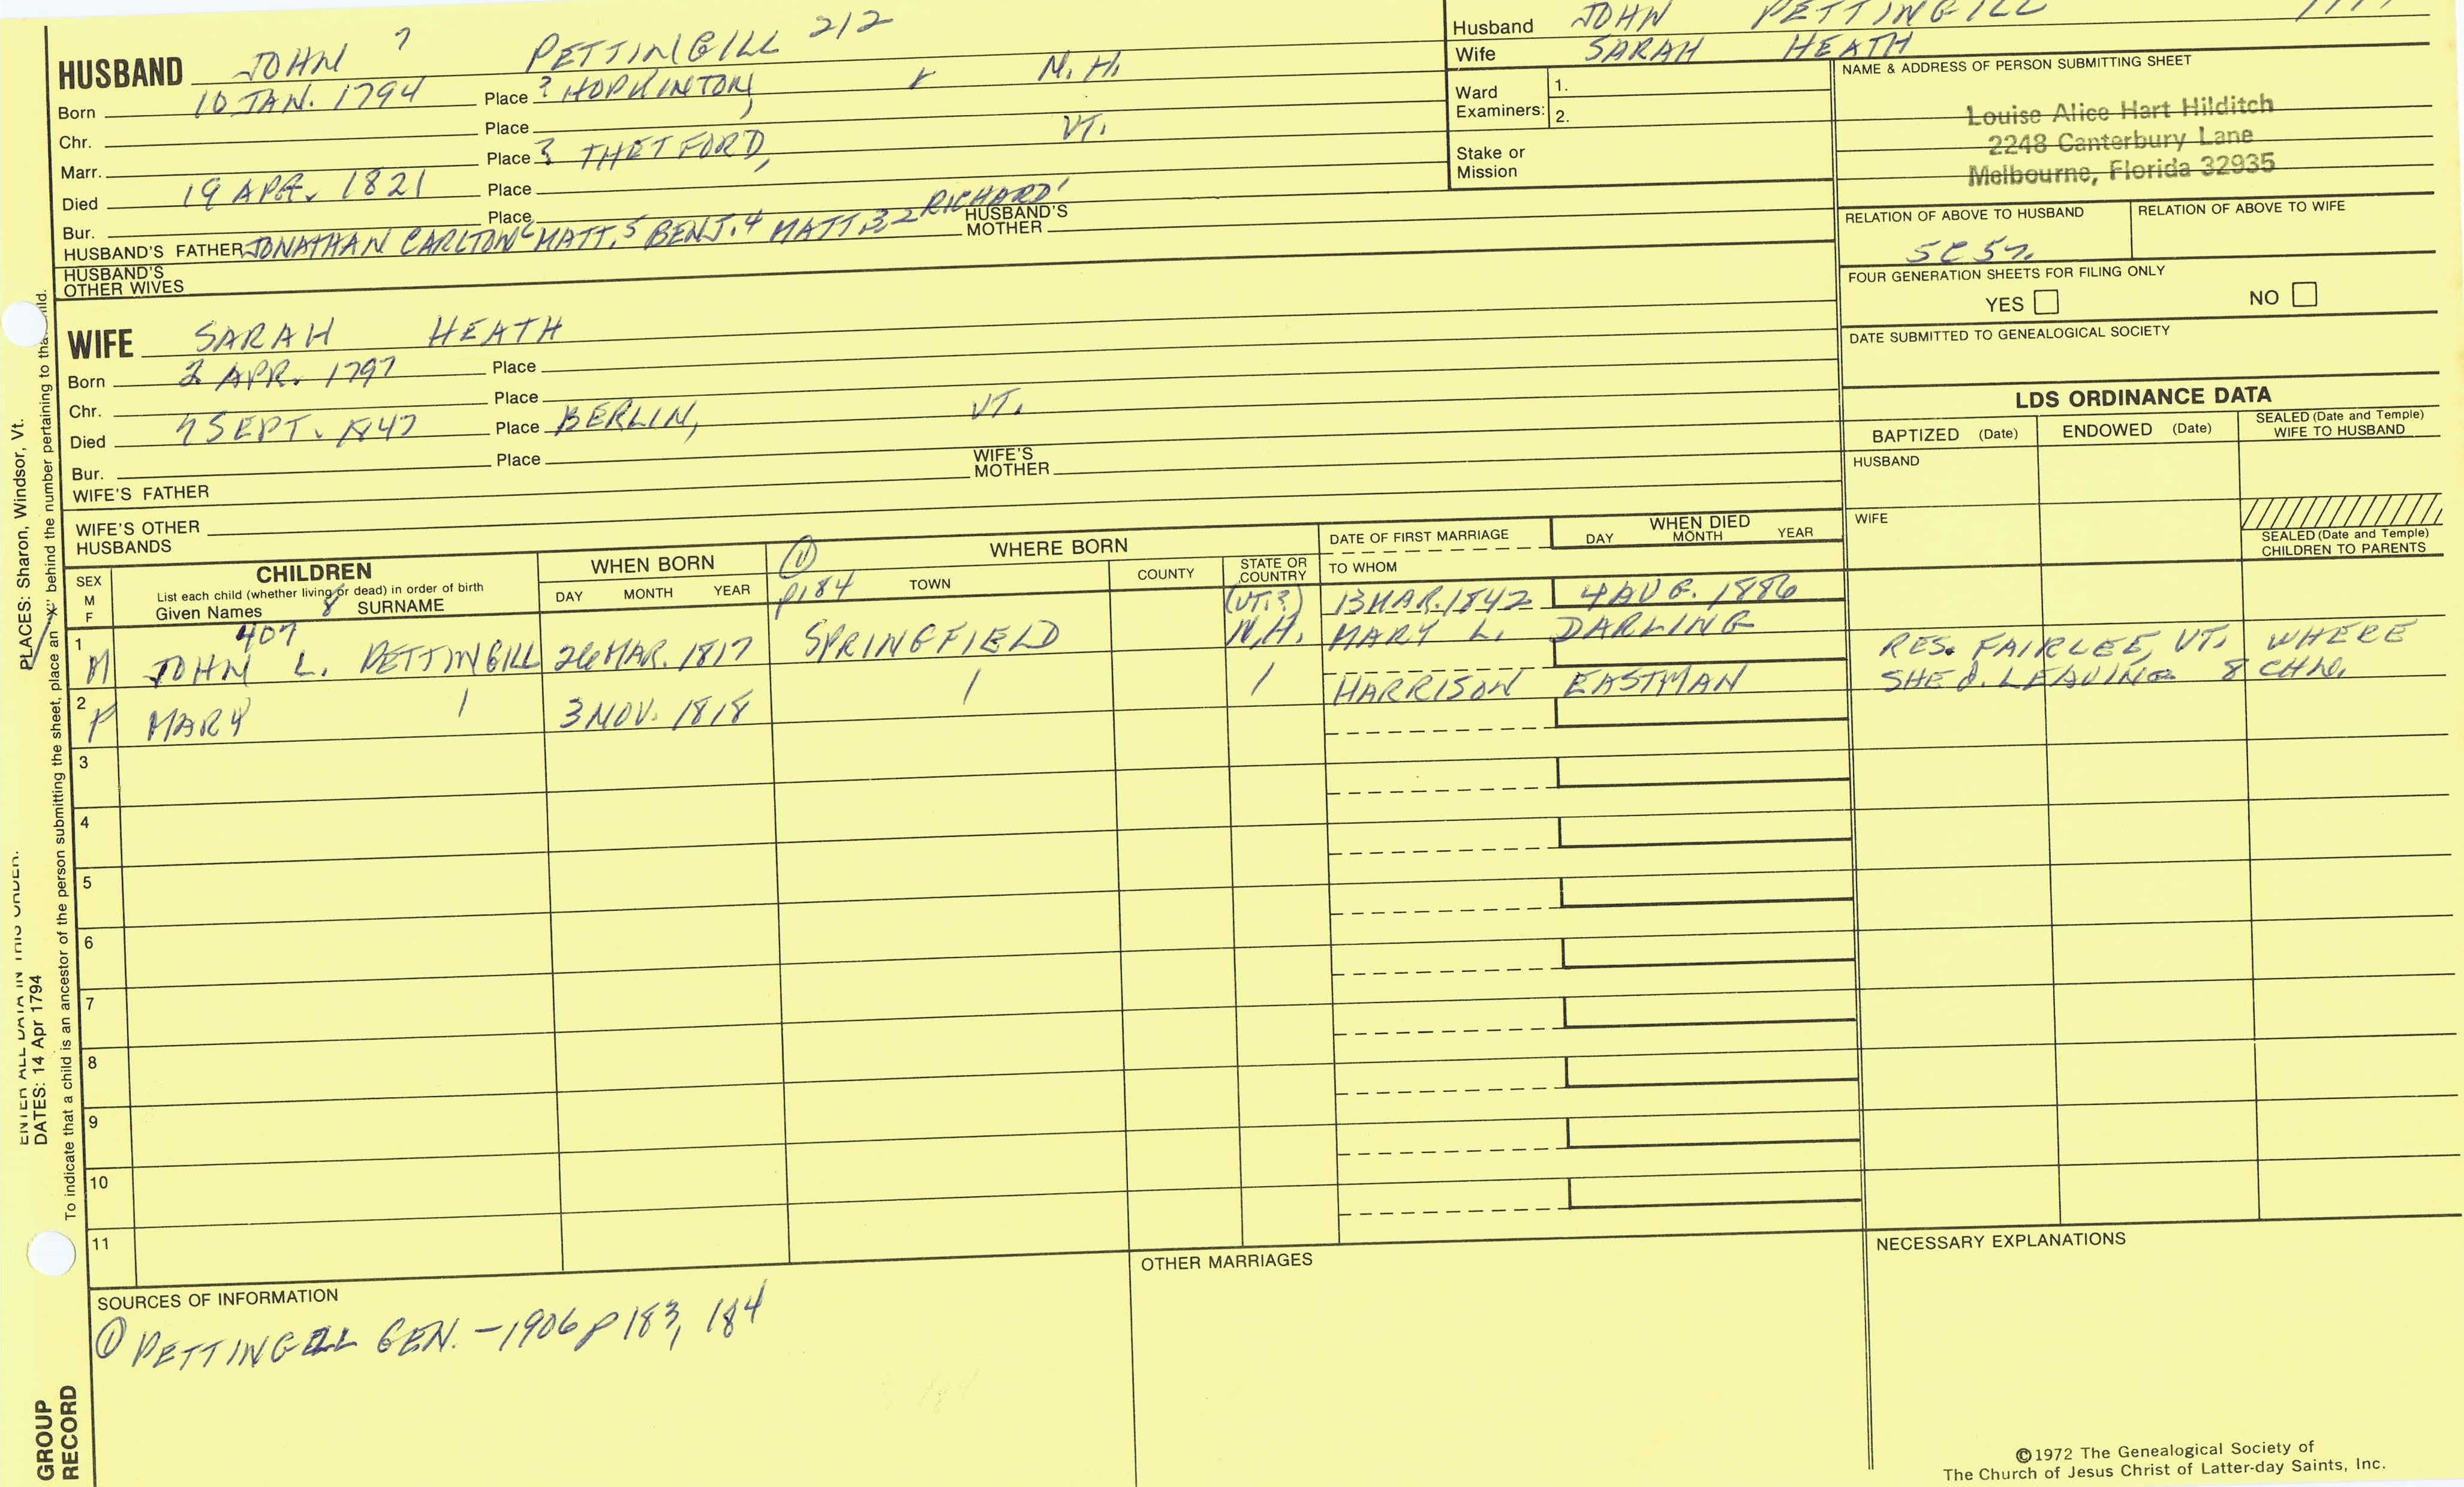 HUSBAND JOHN 7 PETTINGILL 212
Born 10 JAN. 1794 Place ? HOPKINTON, N.H.
Chr. Place
Marr. Place ? THETFORD, VT.
Died 19 APR. 1821 Place
Bur. Place
HUSBAND'S FATHER JONATHAN CARLTON 6 MATT. 5 BENJ. 4 MATT. 3 2 RICHARD 1 HUSBAND'S MOTHER
HUSBAND'S OTHER WIVES
WIFE SARAH HEATH
Born 2 APR. 1797 Place
Chr. Place
Died 7 SEPT. 1847 Place BERLIN, VT.
Bur. Place
WIFE'S FATHER WIFE'S MOTHER
WIFE'S OTHER HUSBANDS
Husband JOHN PETTINGILL
Wife SARAH HEATH
Ward Examiners: 1.
2.
Stake or Mission
NAME & ADDRESS OF PERSON SUBMITTING SHEET
Louise Alice Hart Hilditch
2248 Canterbury Lane
Melbourne, Florida 32935
RELATION OF ABOVE TO HUSBAND RELATION OF ABOVE TO WIFE
5C5r.
FOUR GENERATION SHEETS FOR FILING ONLY
YES NO
DATE SUBMITTED TO GENEALOGICAL SOCIETY
LDS ORDINANCE DATA
BAPTIZED (Date) ENDOWED (Date) SEALED (Date and Temple) WIFE TO HUSBAND
HUSBAND
WIFE
SEALED (Date and Temple) CHILDREN TO PARENTS
SEX M F
CHILDREN
List each child (whether living or dead) in order of birth
Given Names 8 SURNAME
WHEN BORN
DAY MONTH YEAR
① p184
WHERE BORN
TOWN COUNTY STATE OR COUNTRY
DATE OF FIRST MARRIAGE
TO WHOM
WHEN DIED
DAY MONTH YEAR
407 (VT.?) 13 MAR. 1842 4 AUG. 1886
1 M JOHN L. PETTINGILL 26 MAR. 1817 SPRINGFIELD N.H. MARY L. DARLING
RES. FAIRLEE, VT. WHERE
SHE d. LEAVING 8 CHN.
2 F MARY 3 NOV. 1818 HARRISON EASTMAN
3
4
5
6
7
8
9
10
11
SOURCES OF INFORMATION
① PETTINGELL GEN. - 1906 p 183, 184
OTHER MARRIAGES
NECESSARY EXPLANATIONS
©1972 The Genealogical Society of
The Church of Jesus Christ of Latter-day Saints, Inc.
ENTER ALL DATA IN THIS ORDER:
DATES: 14 Apr 1794
PLACES: Sharon, Windsor, Vt.
To indicate that a child is an ancestor of the person submitting the sheet, place an "X" behind the number pertaining to that child.
GROUP
RECORD